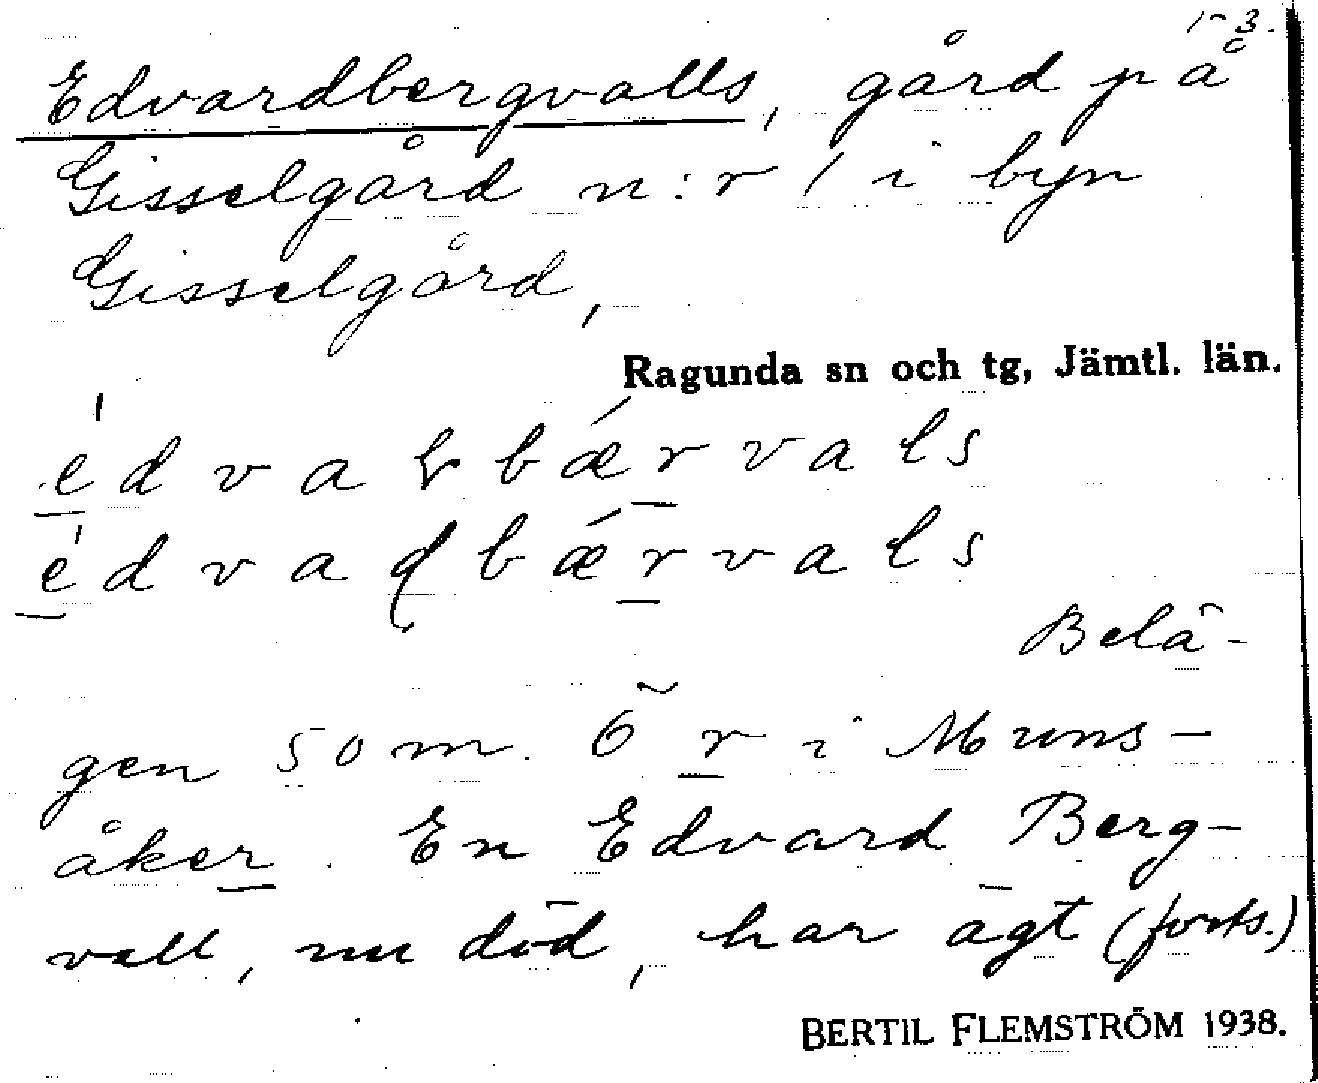 1-3.
Edvardbergvalls, gård på
Gisselgård n:r 1 i byn
Gisselgård,
Ragunda sn och tg, Jämtl. län.
édva bǽrvals
édvaɖbǽrvals
Belä-
gen 50 m. Ö r i Muns-
åker. En Edvard Berg-
vall, nu död, har ägt (forts.)
BERTIL FLEMSTRÖM 1938.